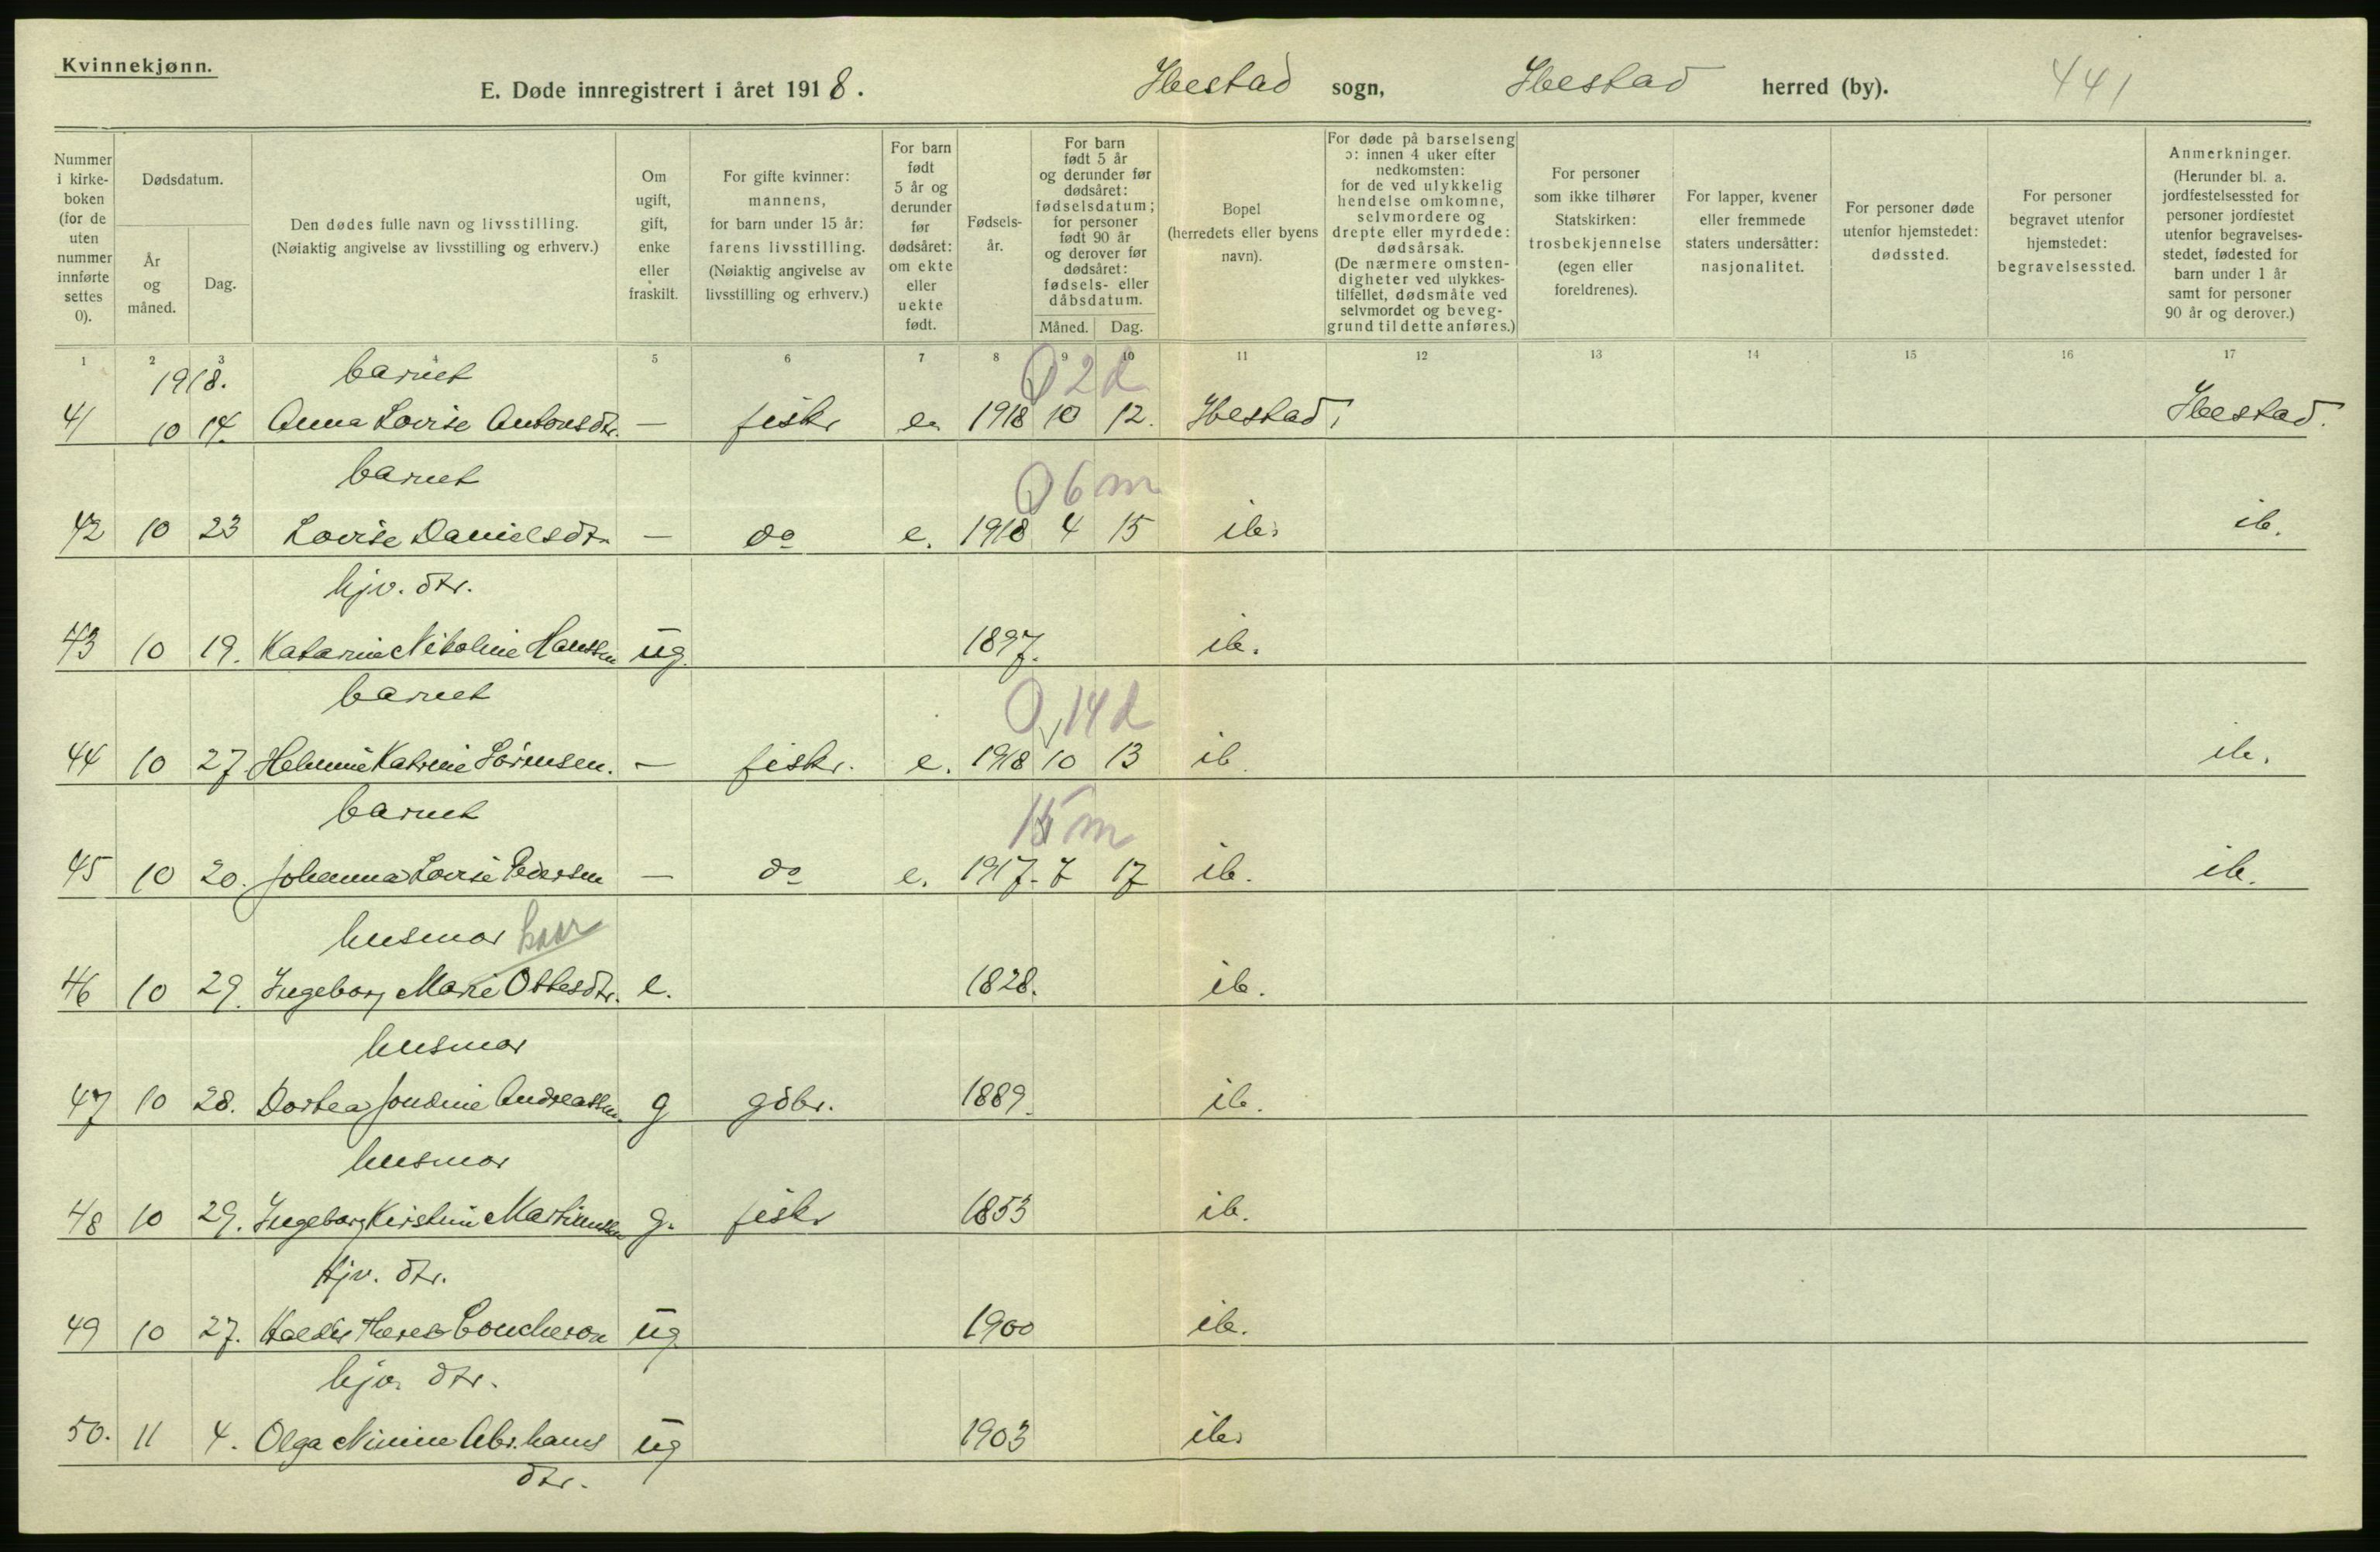 Kvinnekjønn.
E. Døde innregistrert i året 1918. Ibestad sogn, Ibestad herred (by). 441
Nummer i kirkeboken (for de uten nummer innførte settes 0).
Dødsdatum.
År og måned.
Dag.
Den dødes fulle navn og livsstilling.
(Nøiaktig angivelse av livsstilling og erhverv.)
Om ugift, gift, enke eller fraskilt.
For gifte kvinner: mannens, for barn under 15 år: farens livsstilling. (Nøiaktig angivelse av livsstilling og erhverv.)
For barn født 5 år og derunder før dødsåret: om ekte eller uekte født.
Fødselsår.
For barn født 5 år og derunder før dødsåret: fødselsdatum; for personer født 90 år og derover før dødsåret: fødsels- eller dåbsdatum.
Måned. Dag.
Bopel (herredets eller byens navn).
For døde på barselseng ɔ: innen 4 uker efter nedkomsten: for de ved ulykkelig hendelse omkomne, selvmordere og drepte eller myrdede: dødsårsak. (De nærmere omstendigheter ved ulykkestilfellet, dødsmåte ved selvmordet og beveggrund til dette anføres.)
For personer som ikke tilhører Statskirken: trosbekjennelse (egen eller foreldrenes).
For lapper, kvener eller fremmede staters undersåtter: nasjonalitet.
For personer døde utenfor hjemstedet: dødssted.
For personer begravet utenfor hjemstedet: begravelsessted.
Anmerkninger. (Herunder bl. a. jordfestelsessted for personer jordfestet utenfor begravelsesstedet, fødested for barn under 1 år samt for personer 90 år og derover.)
1 2 3 4 5 6 7 8 9 10 11 12 13 14 15 16 17
1918. barnet 0 2 d
41 10 14. Anna Lovise Antonsdtr. — fiskr e. 1918 10 12. Ibestad. Ibestad.
barnet 0 6 m
42 10 23 Lovise Danielsdtr. — do e. 1918 4 15 ib. ib.
hjv. dtr.
43 10 19. Katarine Nikoline Hanssen ug. 1897. ib.
barnet 0 14 d
44 10 27 Helmine Katrine Sørensen. — fiskr. e. 1918 10 13 ib. ib.
barnet 15 m
45 10 20. Johanna Lovise Pedersen — do e. 1917. 7 17 ib. ib.
husmor kaar
46 10 29. Ingeborg Marie Ottesdtr. e. 1828. ib.
husmor
47 10 28. Dortea Jondine Andreassen. g gdbr. 1889. ib.
husmor
48 10 29. Ingeborg Kirstine Martinussen g. fiskr 1853 ib.
Hjv. dtr.
49 10 27. Haldis Coucheron ug. 1900 ib.
hjv. dtr.
50. 11 4. Olga Nimine Abr.hams ug 1903 ib.
dtr.